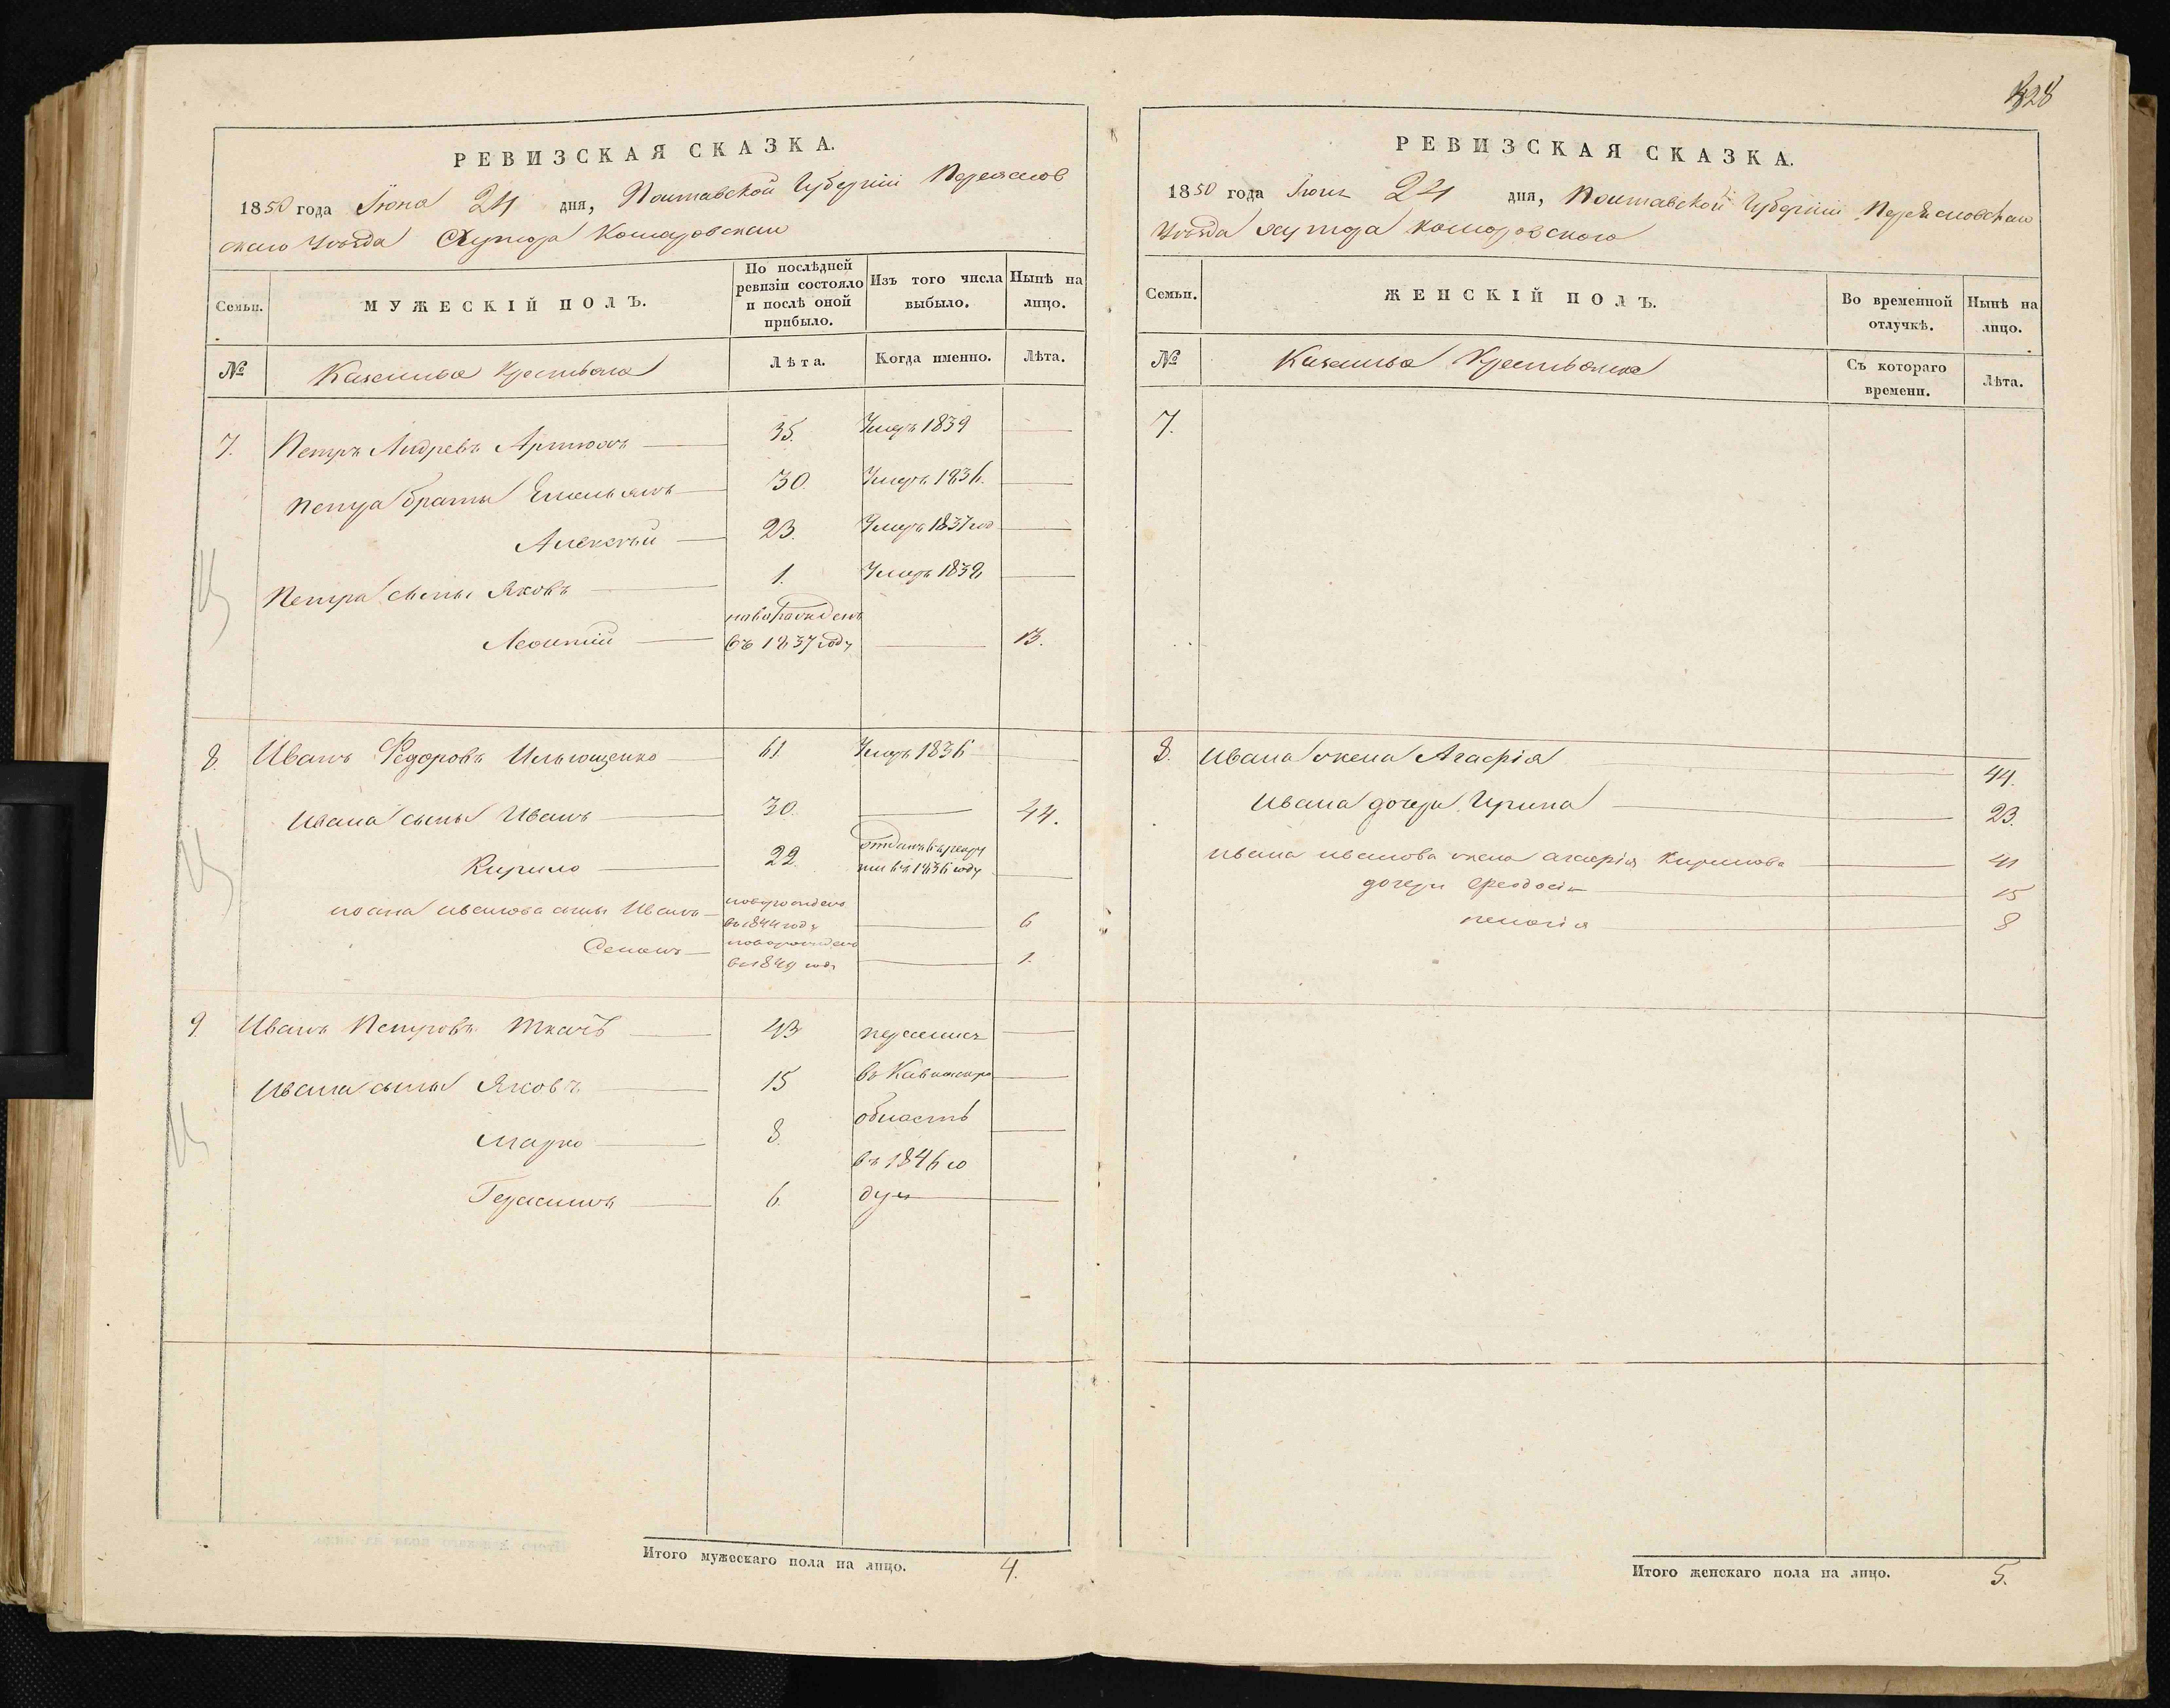 РЕВИЗСКАЯ СКАЗКА.
1850 года Іюня 24 дня, Полтавской Губерніи Переяслов
скаго Уѣзда Хутора Комаровскаго
Семьи.
МУЖЕСКІЙ ПОЛЪ.
По послѣдней ревизіи состояло и послѣ оной прибыло.
Изъ того числа выбыло.
Нынѣ на лицо.
№
Казенные Крестьяне
Лѣта.
Когда именно.
Лѣта.
7. Петръ Андреевъ 35. Умеръ 1839
Петра братья Емельянъ 30. Умеръ 1836.
Алексѣй 23. Умеръ 1837 год
Петра сыны Яковъ 1. Умеръ 1838
Леонтій новорожденъ въ 1837 году 13.
8. Иванъ Федоровъ Ильющенко 61 Умеръ 1836
Ивана сыны Иванъ 30. 44.
Кирило 22. отданъ въ рекру ты въ 1836 году
Ивана Иванова сыны Иванъ новорожденъ въ 1844 году 6
Семенъ новорожденъ въ 1849 году 1.
9. Иванъ Петровъ Ткачъ 43 переселенъ
Ивана сыны Яковъ 15 въ Кавказскую
Марко 8. область
въ 1846 го
Герасимъ 6. ду
Итого мужескаго пола на лицо. 4.
828
РЕВИЗСКАЯ СКАЗКА.
1850 года Іюня 24 дня, Полтавской Губерніи Переясловскаго
Уѣзда хутора Комаровского
Семьи.
ЖЕНСКІЙ ПОЛЪ.
Во временной отлучкѣ.
Нынѣ на лицо.
№
Казенные Крестьянке
Съ котораго времени.
Лѣта.
7.
8. Ивана жена Агафія 44.
Ивана дочери Ирина 23.
Ивана Иванова жена Агафія Кирилова 41
дочери Феодосія 15
Пелагія 8
Итого женскаго пола на лицо. 5.